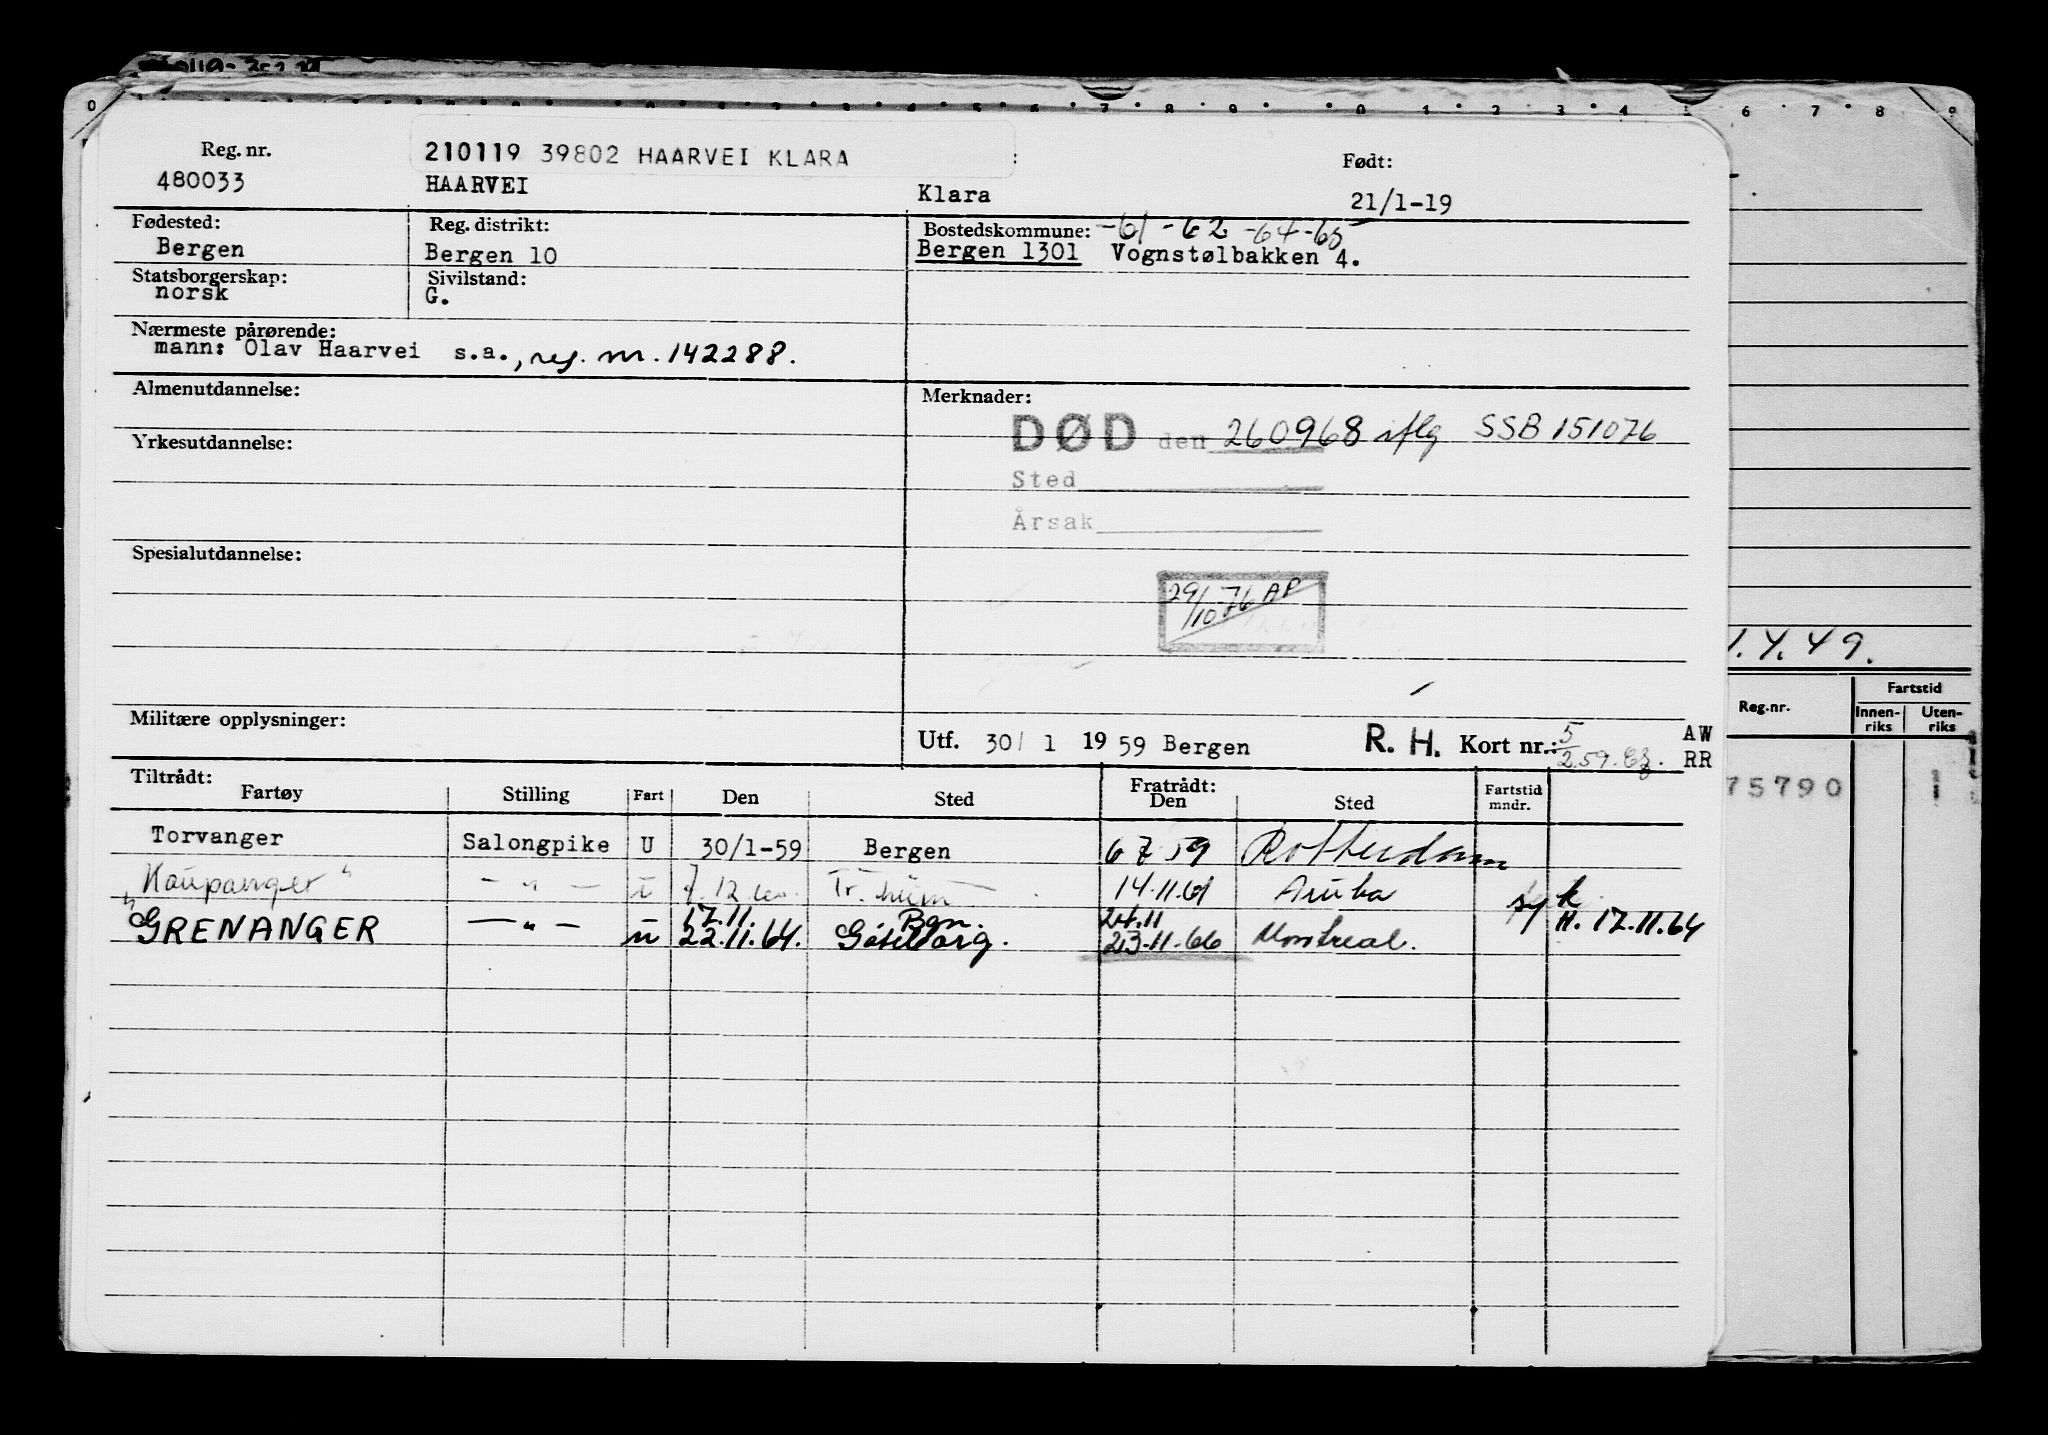 0 7 8 9 0 1 2 3 4 5 6 7 8 9
Reg. nr. 210119 39802 HAARVEI KLARA Født:
480033 HAARVEI Klara 21/1-19
Fødested: Reg. distrikt: Bostedskommune: -61 -62 -64-65
Bergen Bergen 10 Bergen 1301 Vognstølbakken 4.
Statsborgerskap: Sivilstand:
norsk G.
Nærmeste pårørende:
mann: Olav Haarvei s.a., reg. nr. 142288.
Almenutdannelse: Merknader:
DØD den 260968 iflg SSB 151076
Yrkesutdannelse:
Sted
Årsak
Spesialutdannelse:
29/10-76 AP
1.4.49.
Militære opplysninger:
Utf. 30/ 1 1959 Bergen R. H. Kort nr.: 5 AW
2.59. RR
Reg.nr. Fartstid
Innen-riks Uten-riks
75790 1
Tiltrådt: Fratrådt:
Fartøy Stilling Fart Den Sted Den Sted Fartstid mndr.
Torvanger Salongpike U 30/1-59 Bergen 6 7 59 Rotterdam
"Kaupanger" — " — u 7.12 60. Tr.heim 14.11.61 Aruba syk
17.11. Bgn. 24.11 H. 17.11.64
"GRENANGER — " — u 22.11.64. Göteborg. 23.11.66 Montreal.